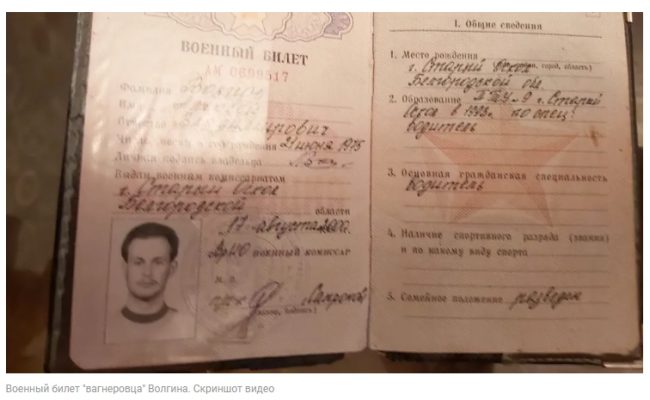 ВОЕННЫЙ БИЛЕТ
АМ 0699517
Фамилия
Имя
Отчество
Число, месяц и год рождения 21 июня 1975
Личная подпись владельца
Выдан военным комиссариатом
г. Старый Оскол
Белгородской
области
17 августа 2000
военный комиссар
М. П.
I. Общие сведения
1. Место рождения
г. Старый Оскол
Белгородской
2. Образование
г. Старый
Оскол в 1993г. по спец.
водитель
3. Основная гражданская специальность
водитель
4. Наличие спортивного разряда (звания)
и по какому виду спорта
5. Семейное положение разведен
Военный билет "вагнеровца" Волгина. Скриншот видео